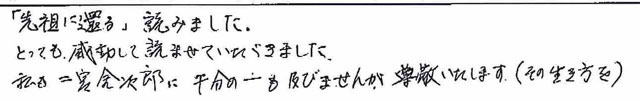 「先祖に還る」読みました。
とっても、感動して読ませていただきました。
私も二宮金次郎に千分の一も及びませんが尊敬いたします。(その生き方を)